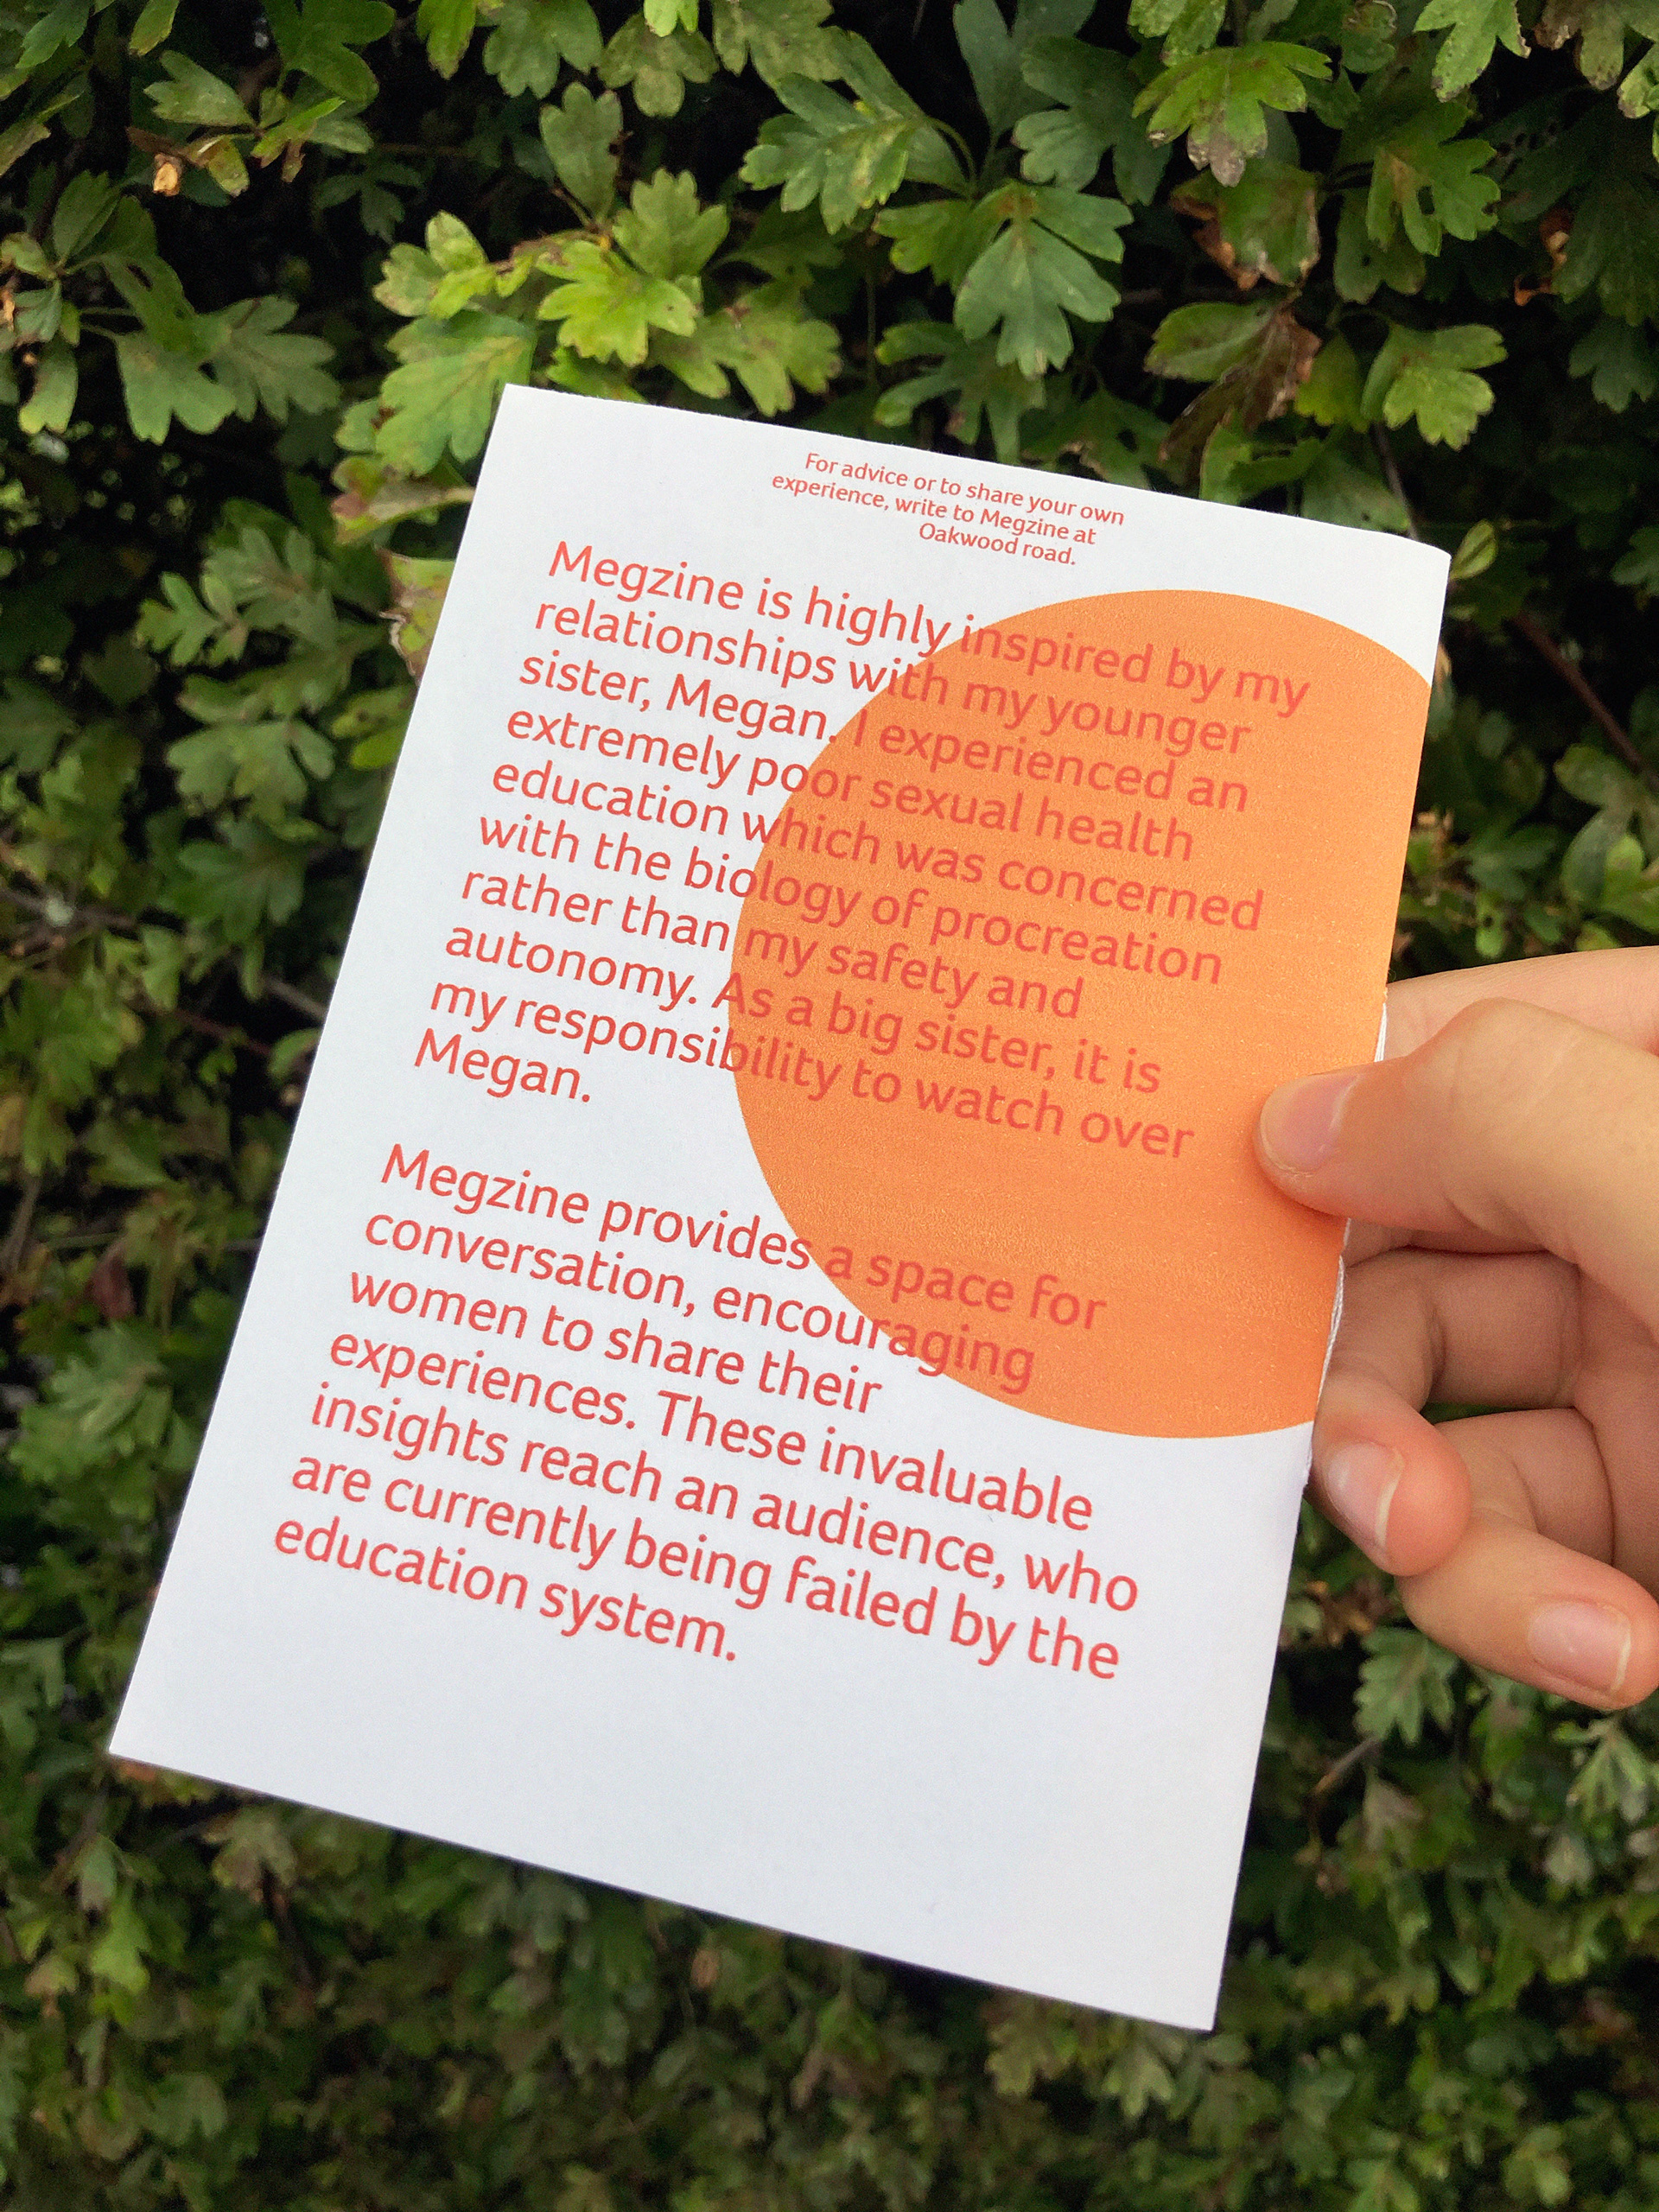 For advice or to share your own
experience, write to Megzine at
Oakwood road.
Megzine is highly inspired by my
relationships with my younger
sister, Megan. I experienced an
extremely poor sexual health
education which was concerned
with the biology of procreation
rather than my safety and
autonomy. As a big sister, it is
my responsibility to watch over
Megan.
Megzine provides a space for
conversation, encouraging
women to share their
experiences. These invaluable
insights reach an audience, who
are currently being failed by the
education system.